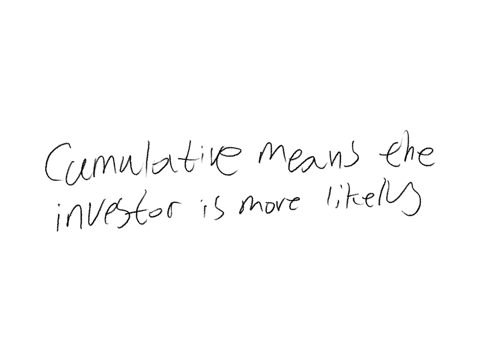 Cumulative means the
investor is more likely